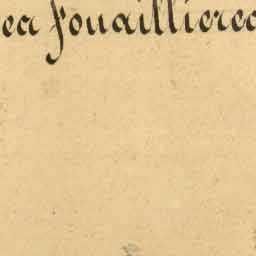 ea fouaillierea